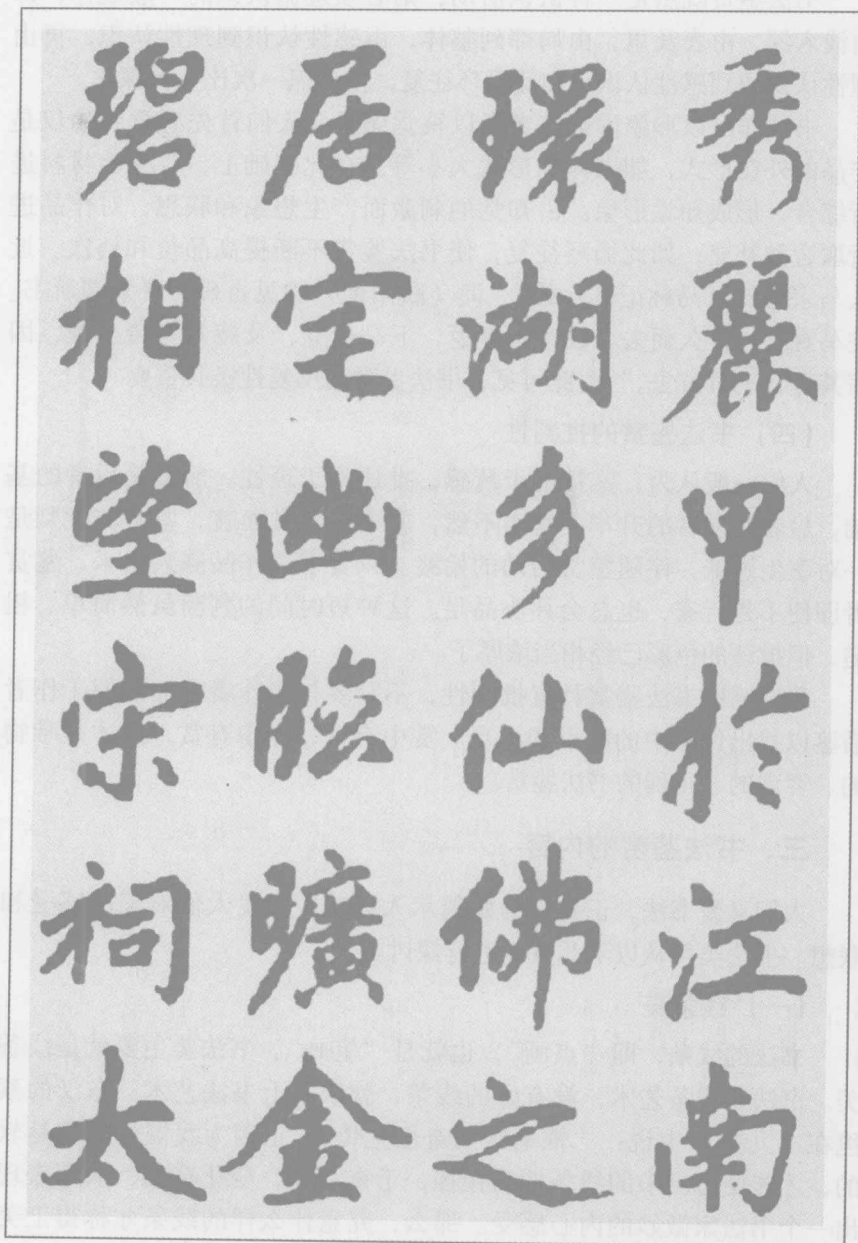 秀麗甲於江南
環湖多仙佛之
居宅幽曠金
碧相望宗祠太